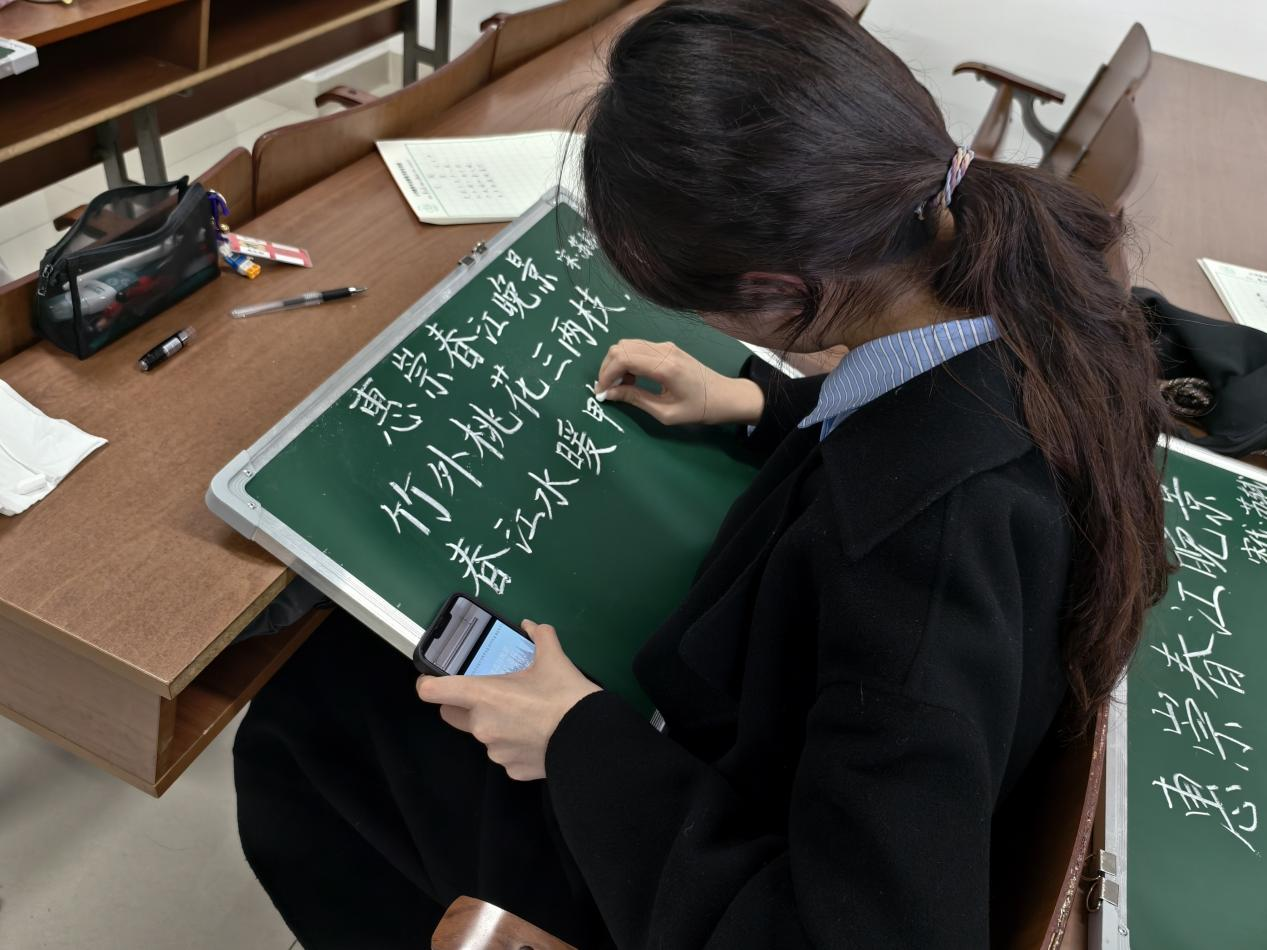 惠崇春江晚景 宋·苏
竹外桃花三两枝，
春江水暖甲
惠崇春江晚景
宋·苏轼